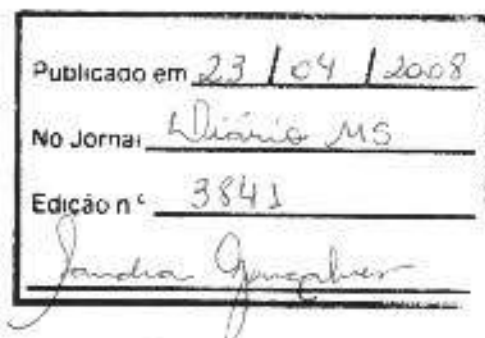 Publicado em 23 / 04 / 2008
No Jornal Diário MS
Edição nº 3841
Sandra Gonçalves